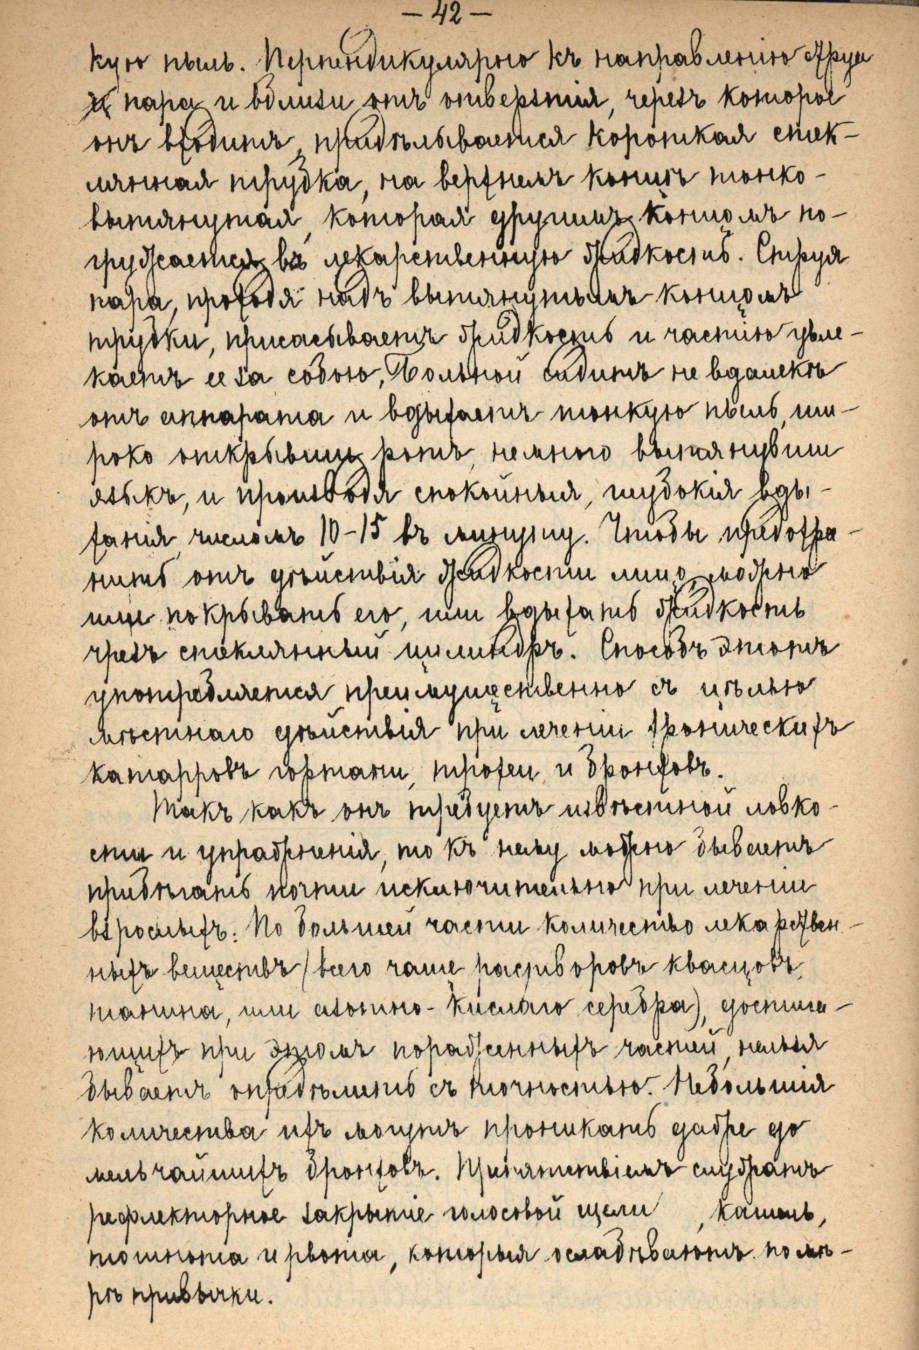 — 42 —
кую пыль. Перпендикулярно къ направленію струи
пара и вблизи отъ отверстія, черезъ которое
онъ входитъ, придѣлывается короткая стек-
лянная трубка, на верхнемъ концѣ тонко-
вытянутая, которая другимъ концомъ по-
гружается въ лекарственную жидкость. Струя
пара, проходя надъ вытянутымъ концомъ
трубки, присасываетъ жидкость и частію увле-
каетъ ее за собою. Больной сидитъ не вдалекѣ
отъ аппарата и вдыхаетъ тонкую пыль, ши-
роко открывши ротъ, немного вытянувши
языкъ, и производя спокойныя, глубокія вды-
ханія, числомъ 10-15 въ минуту. Чтобы предохра-
нить отъ дѣйствія жидкости лицо, можно
или покрывать его, или вдыхать жидкость
чрезъ стеклянный цилиндръ. Способъ этотъ
употребляется преимущественно съ цѣлью
мѣстнаго дѣйствія при леченіи хроническихъ
катарровъ гортани, трохеи и бронховъ.
Такъ какъ онъ требуетъ извѣстной ловко-
сти и упражненія, то къ нему можно бываетъ
прибѣгать почти исключительно при леченіи
взрослыхъ. По большей части количество лекарствен-
ныхъ веществъ (всего чаще растворовъ квасцовъ,
танина, или азотно-кислаго серебра), достига-
ющихъ при этомъ пораженныхъ частей, нельзя
бываетъ опредѣлить съ точностью. Небольшія
количества ихъ могутъ проникать даже до
мельчайшихъ бронховъ. Препятствіемъ служатъ
рефлекторное закрытіе голосовой щели , кашель,
тошнота и рвота, которыя ослабѣваютъ по мѣ-
рѣ привычки.